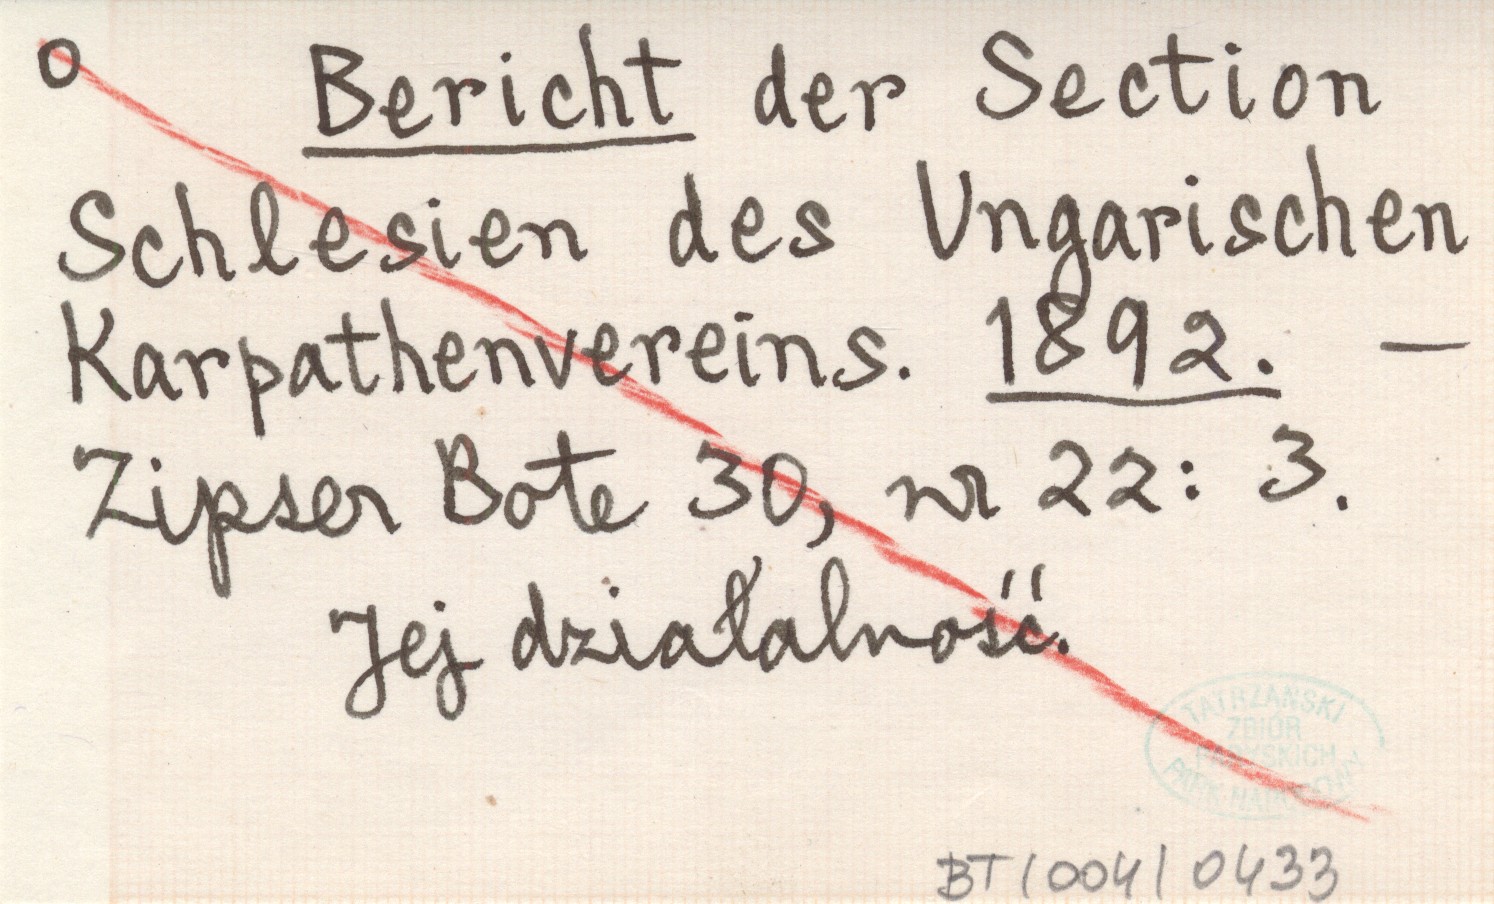 o Bericht der Section
Schlesien des Ungarischen
Karpathenvereins. 1892. —
Zipser Bote 30, nr 22: 3.
Jej działalność.
TATRZAŃSKI
ZBIÓR
PARYSKICH
PARK NARODOWY
BT/004/0433